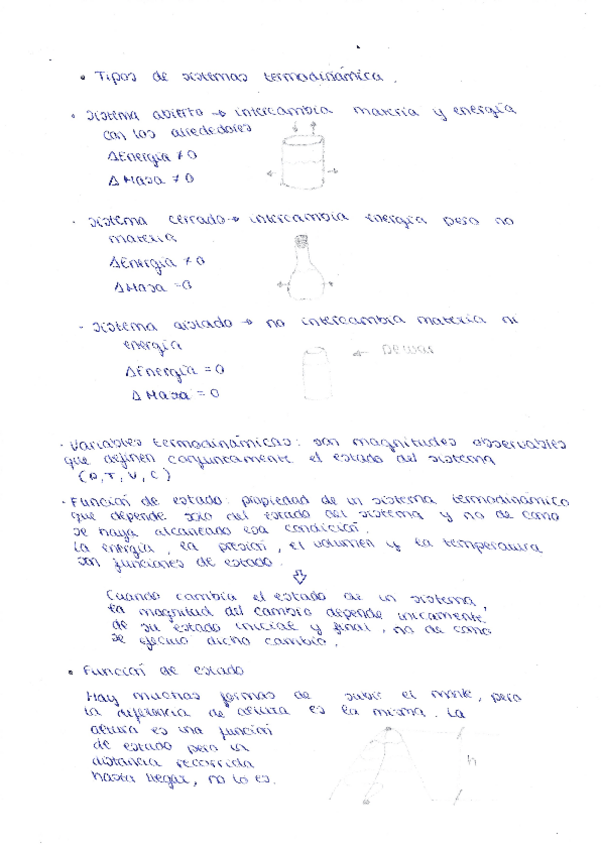 • Tipos de sistemas termodinámica.
• Sistema abierto → intercambia materia y energía
con los alrededores
ΔEnergía ≠ 0
ΔMasa ≠ 0
- Sistema cerrado → intercambia energía pero no
materia
ΔEnergía ≠ 0
ΔMasa = 0
- Sistema aislado → no intercambia materia ni
energía
← Dewar
ΔEnergía = 0
ΔMasa = 0
· Variables termodinámicas: son magnitudes observables
que definen conjuntamente el estado del sistema
(P, T, V, C)
· Función de estado: propiedad de un sistema termodinámico
que depende solo del estado del sistema y no de como
se haya alcanzado esa condición.
La energía, la presión, el volumen y la temperatura
son funciones de estado.
Cuando cambia el estado de un sistema,
la magnitud del cambio depende unicamente
de su estado inicial y final, no de como
se efectuo dicho cambio.
• Función de estado
Hay muchas formas de subir el monte, pero
la diferencia de altura es la misma. La
altura es una función
de estado pero la
distancia recorrida
hasta llegar, no lo es.
h